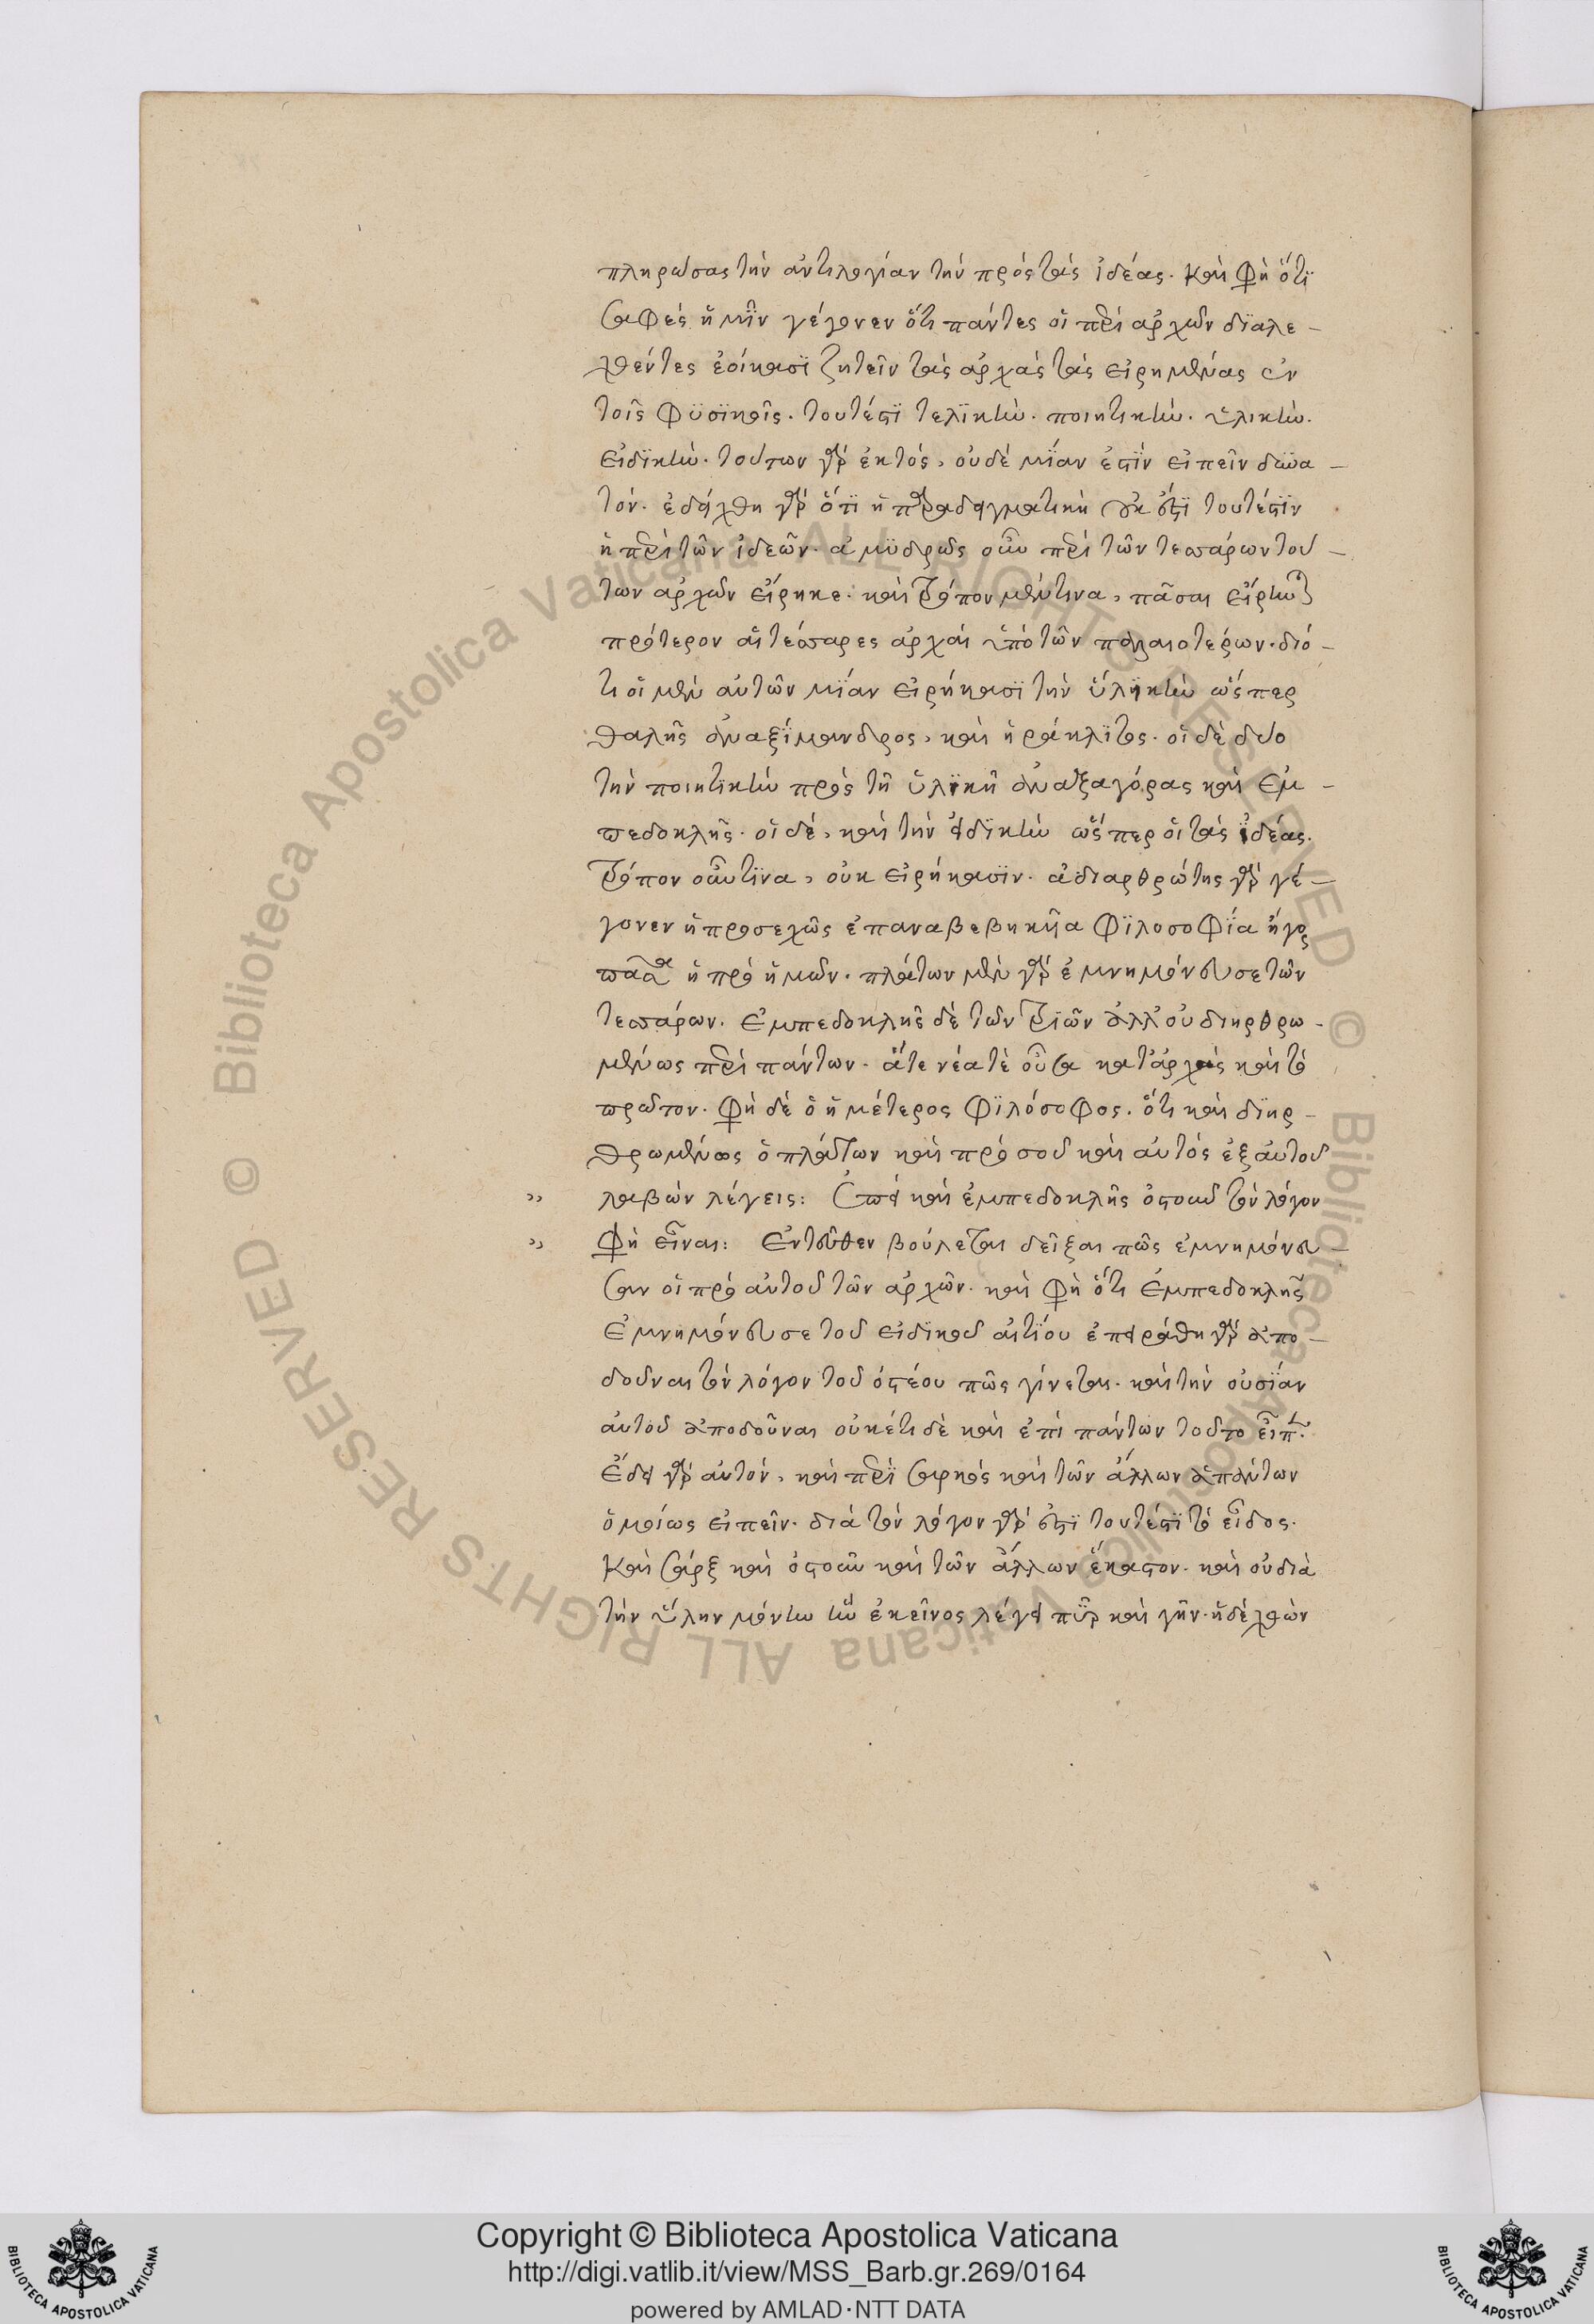 πληρώσας τὴν ἀντιλογίαν τὴν πρὸς τὰς ἰδέας. καὶ φὴ ὅτι
σαφὲς ἡμῖν γέγονεν ὅτι πάντες οἱ περὶ ἀρχῶν διαλε-
χθέντες ἐοίκασι ζητεῖν τὰς ἀρχὰς τὰς εἰρημένας ἐν
τοῖς φυσικοῖς. τουτέστι τελικὴν. ποιητικὴν. ὑλικὴν.
εἰδικὴν. τούτων γὰρ ἐκτὸς, οὐδὲ μίαν ἐστὶν εἰπεῖν δυνα-
τόν. ἐδείχθη γὰρ ὅτι ἡ παραδειγματικὴ οὐκ ἔστι τουτέστιν
ἡ περὶ τῶν ἰδεῶν. ἀμυδρῶς οὖν περὶ τῶν τεσσάρων τού-
των ἀρχῶν εἴρηκε. καὶ τρόπον μέν τινα, πᾶσαι εἴρηνται
πρότερον αἱ τέσσαρες ἀρχαὶ ὑπὸ τῶν παλαιοτέρων. διό-
τι οἱ μὲν αὐτῶν μίαν εἰρήκασι τὴν ὑλικὴν ὥσπερ
θαλῆς ἀναξίμανδρος, καὶ ἡράκλιτος. οἱ δὲ δύο
τὴν ποιητικὴν πρὸς τῇ ὑλικῇ ἀναξαγόρας καὶ ἐμ-
πεδοκλῆς. οἱ δὲ, καὶ τὴν εἰδικὴν ὥσπερ οἱ τὰς ἰδέας.
τρόπον οὖν τινα, οὐκ εἰρήκασιν. ἀδιαρθρώτης γὰρ γέ-
γονεν ἡ προσεχῶς ἐπαναβεβηκῆα φιλοσοφία ἤγος
πᾶσα ἡ πρὸ ἡμῶν. πλάτων μὲν γὰρ ἐμνημόνευσε τῶν
τεσσάρων. ἐμπεδοκλῆς δὲ τῶν τριῶν ἀλλ' οὐ διηρθρω-
μένως περὶ πάντων. ἅτε νέα τὲ οὖσα κατ' ἀρχὰς καὶ τὸ
πρῶτον. φὴ δὲ ὁ ἡμέτερος φιλόσοφος. ὅτι καὶ διηρ-
θρωμένως ὁ πλάτων καὶ πρὸ σοῦ καὶ αὐτὸς ἐξ αὐτοῦ
,, λαβὼν λέγεις: ἐπεὶ καὶ ἐμπεδοκλῆς ὀστοῦν τὸν λόγον
,, φὴ εἶναι: ἐντεῦθεν βούλεται δεῖξαι πῶς ἐμνημόνευ-
σαν οἱ πρὸ αὐτοῦ τῶν ἀρχῶν. καὶ φὴ ὅτι ἐμπεδοκλῆς
ἐμνημόνευσε τοῦ εἰδικοῦ αἰτίου ἐπειράθη γὰρ ἀπο-
δοῦναι τὸν λόγον τοῦ ὀστέου πῶς γίνεται. καὶ τὴν οὐσίαν
αὐτοῦ ἀποδοῦναι οὐκέτι δὲ καὶ ἐπὶ πάντων τοῦτο εἶπ.
ἔδει γὰρ αὐτόν, καὶ περὶ σαρκὸς καὶ τῶν ἄλλων ἁπάντων
ὁμοίως εἰπεῖν. διὰ τὸν λόγον γὰρ ἔστι τουτέστι τὸ εἶδος.
καὶ σάρξ καὶ ὀστοῦν καὶ τῶν ἄλλων ἕκαστον. καὶ οὐ διὰ
τὴν ὕλην μόνην ἣν ἐκεῖνος λέγει πῦρ καὶ γῆν. ἤδε λθὼν
Copyright © Biblioteca Apostolica Vaticana
http://digi.vatlib.it/view/MSS_Barb.gr.269/0164
powered by AMLAD·NTT DATA